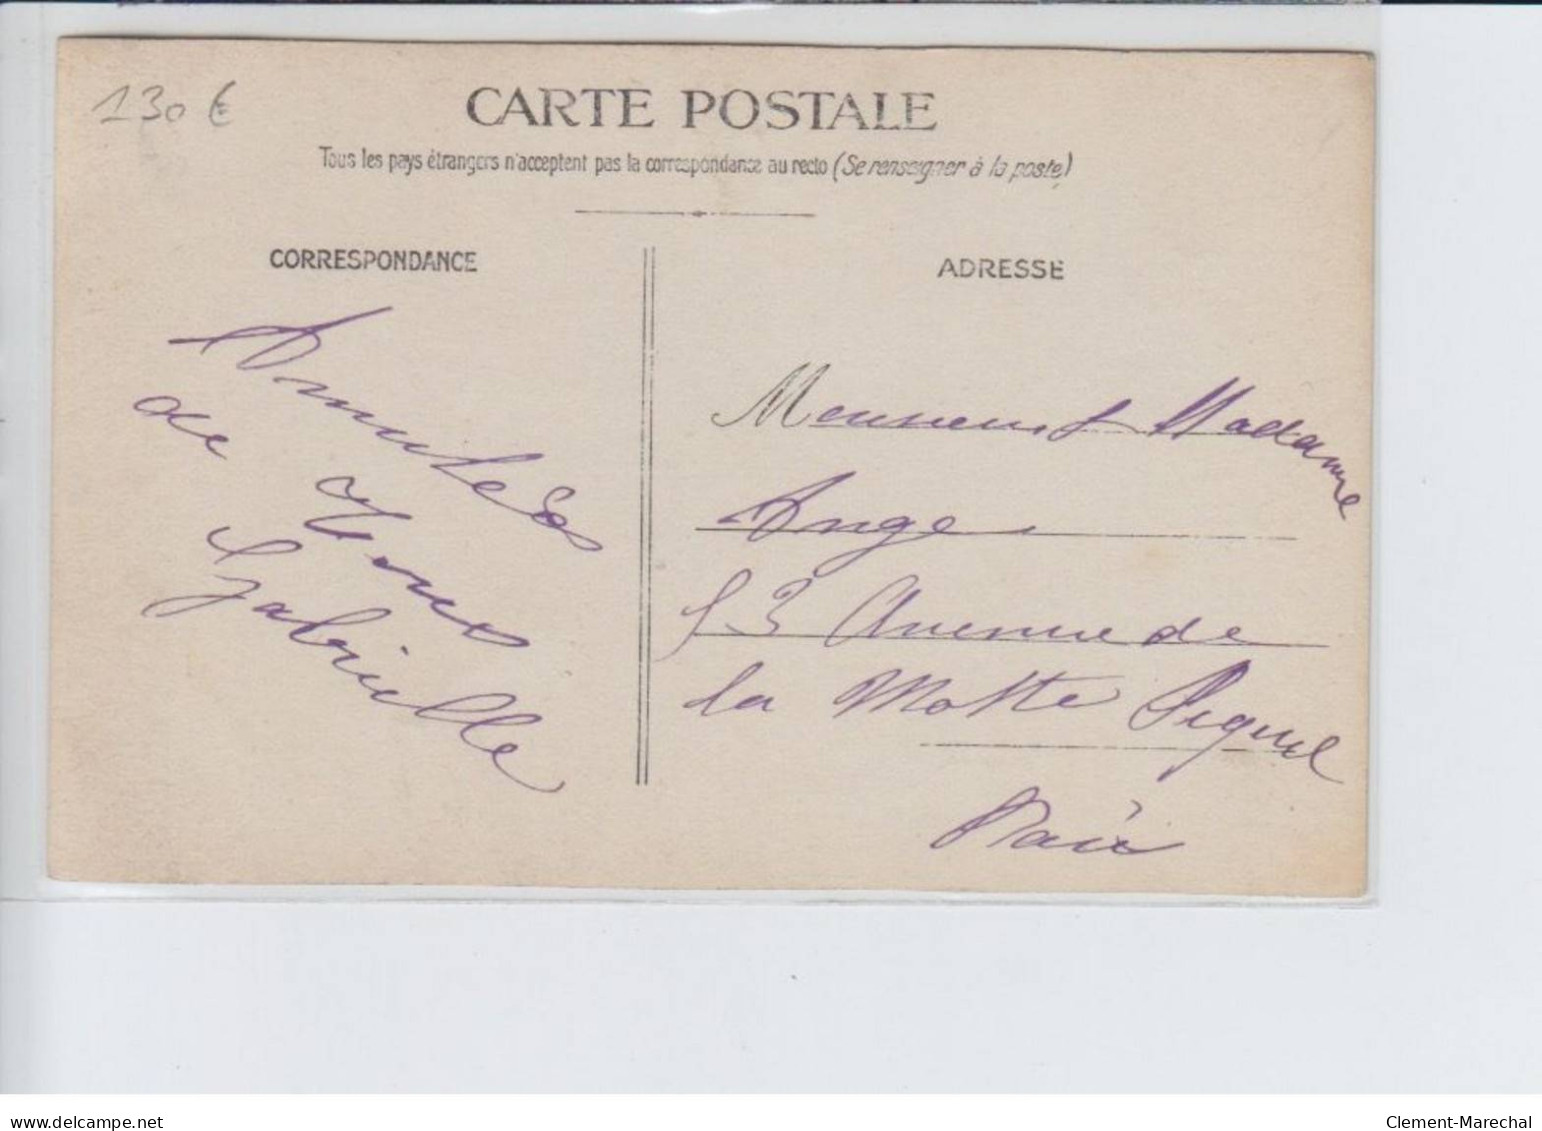 130 €
CARTE POSTALE
Tous les pays étrangers n'acceptent pas la correspondance au recto (Se renseigner à la poste)
CORRESPONDANCE
Amitiés
de Yous
Gabrielle
ADRESSE
Monsieur et Madame
Ange
53 Avenue de
la Motte Piquet
Paris
www.delcampe.net
Clement-Marechal